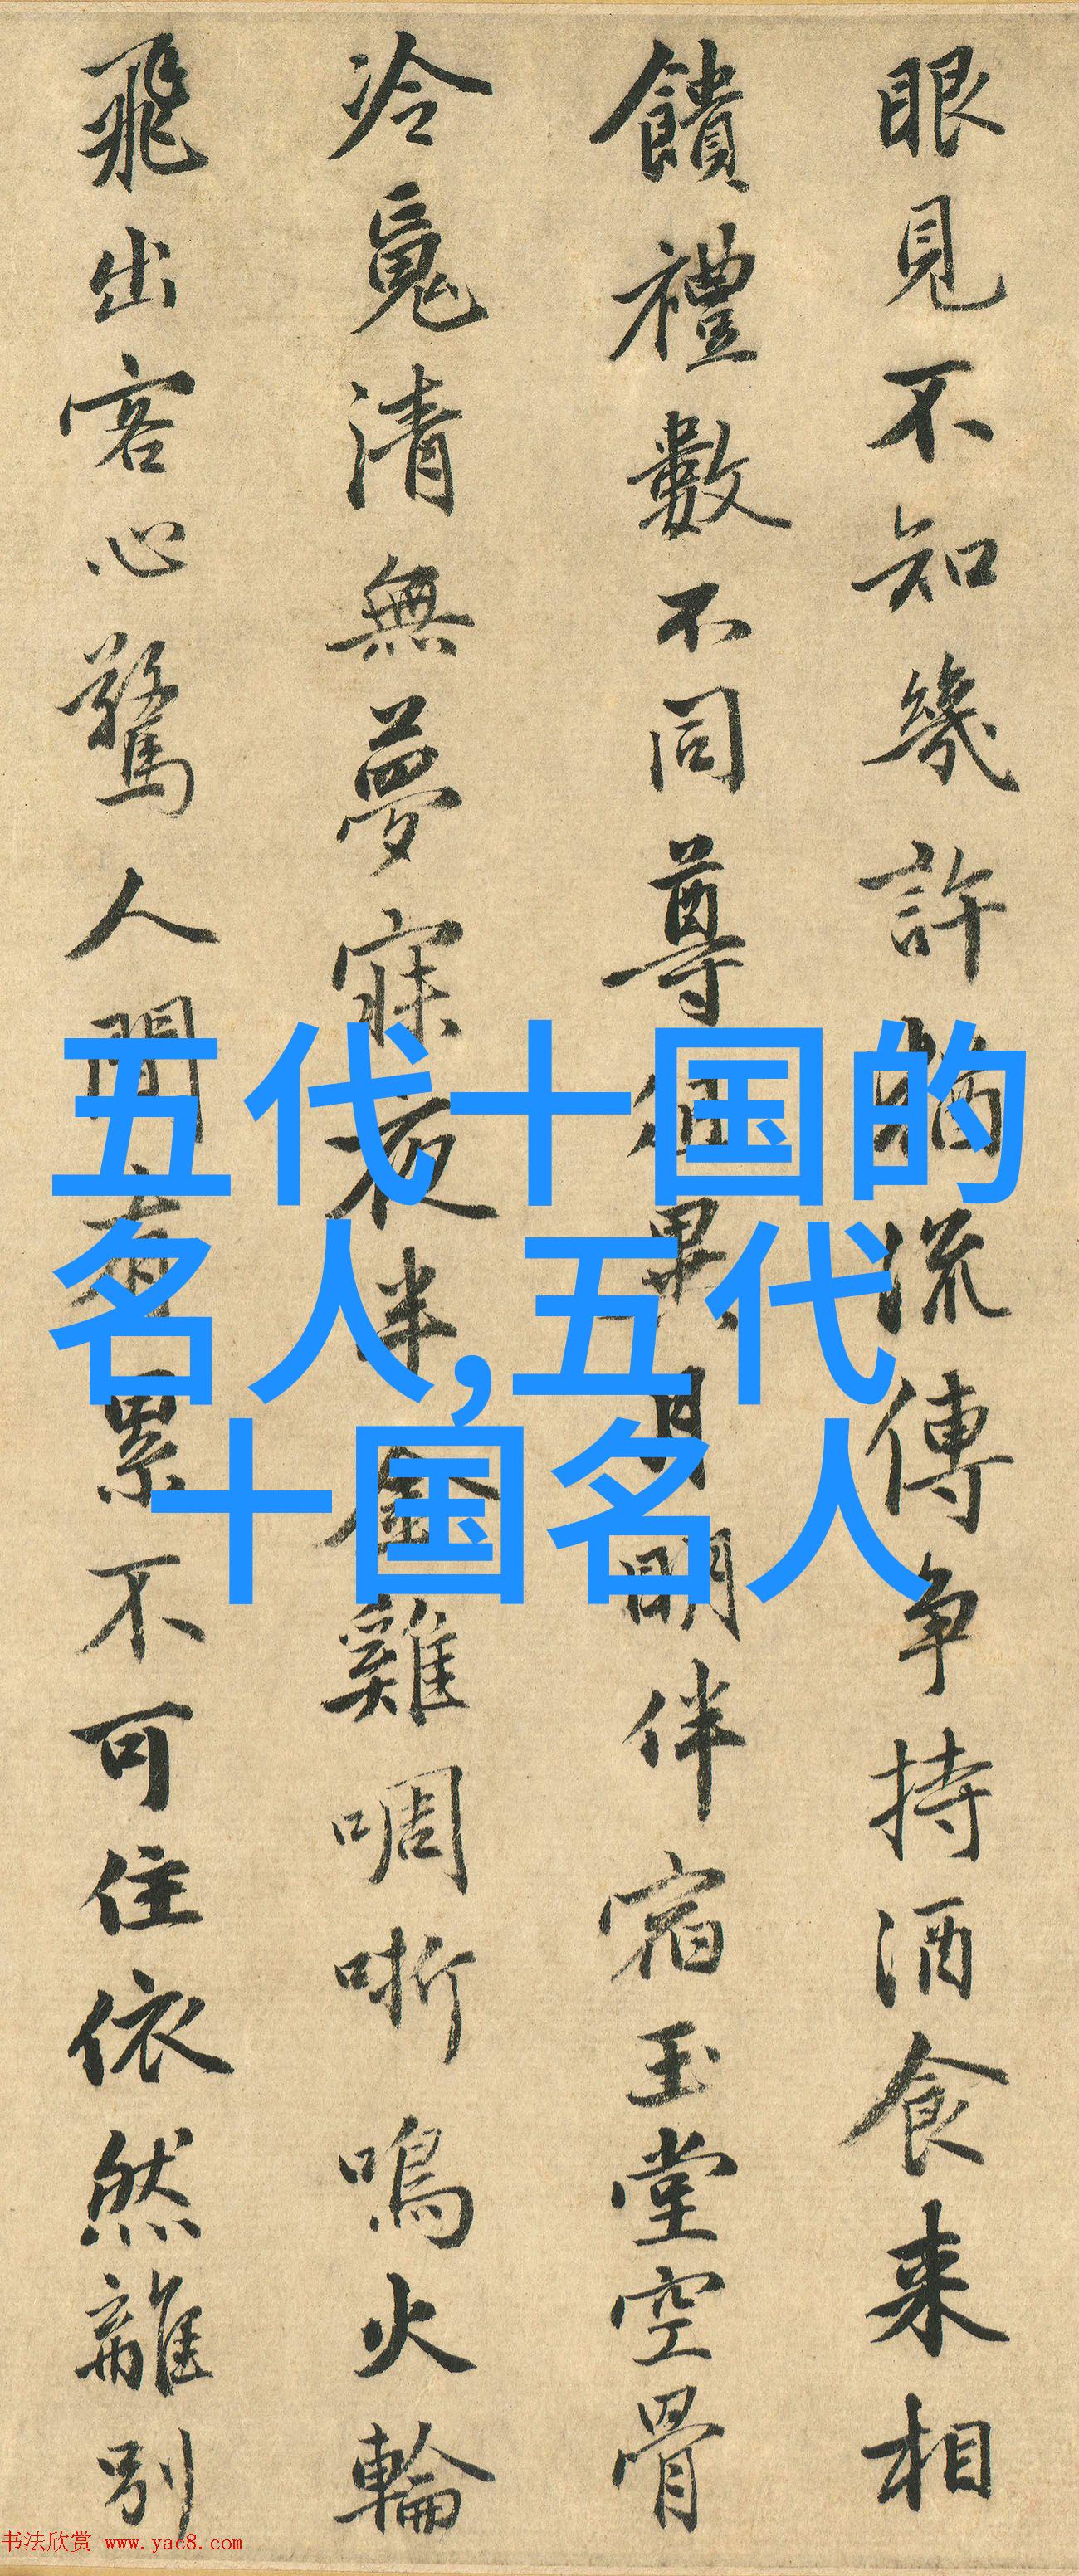 眼見不知幾許猶流傳爭持酒食来相
饋禮數不同尊卑畢月明伴宿玉堂空骨
冷魂清無夢寐夜半金雞啁哳鳴火輪
飛出客心驚人間有累不可住依然離別
五代十国的
名人,五代
十国名人
书法欣赏 www.yac8.com